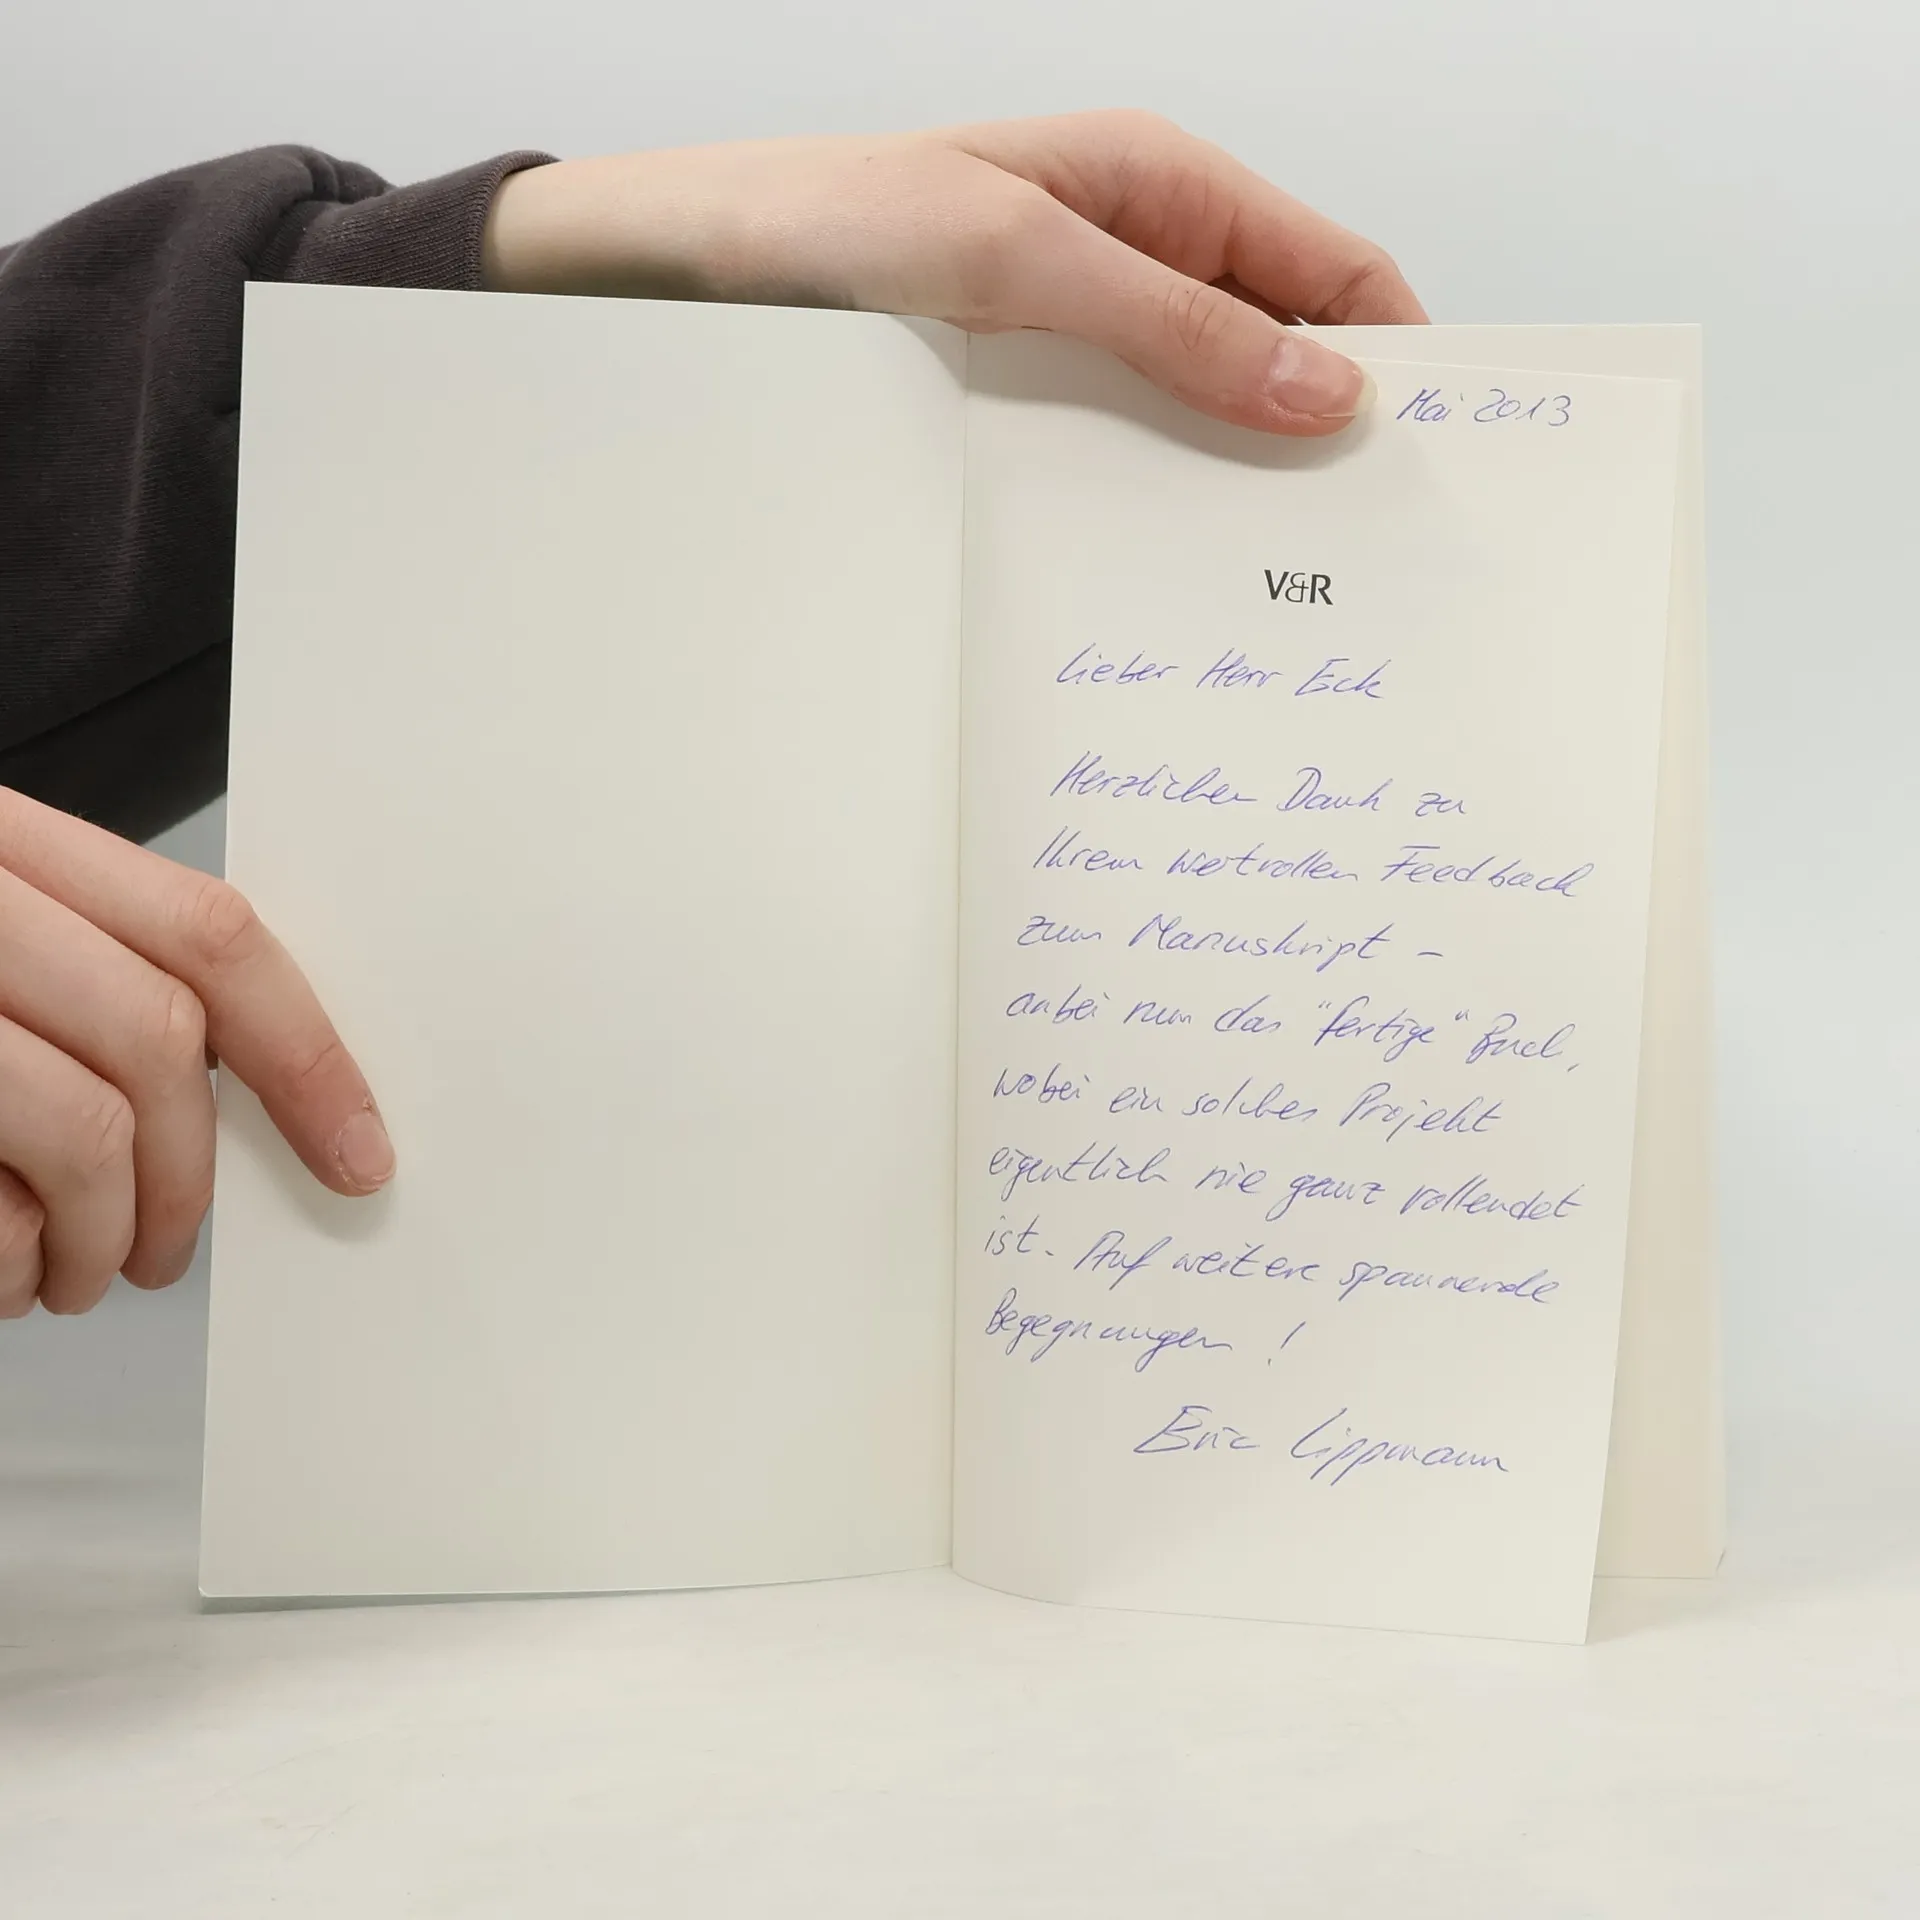 Mai 2013
V&R
Lieber Herr Eck
Herzlichen Dank zu
Ihrem wertvollen Feedback
zum Manuskript –
anbei nun das "fertige" Buch,
wobei ein solches Projekt
eigentlich nie ganz vollendet
ist. Auf weitere spannende
Begegnungen !
Eric Lippmann